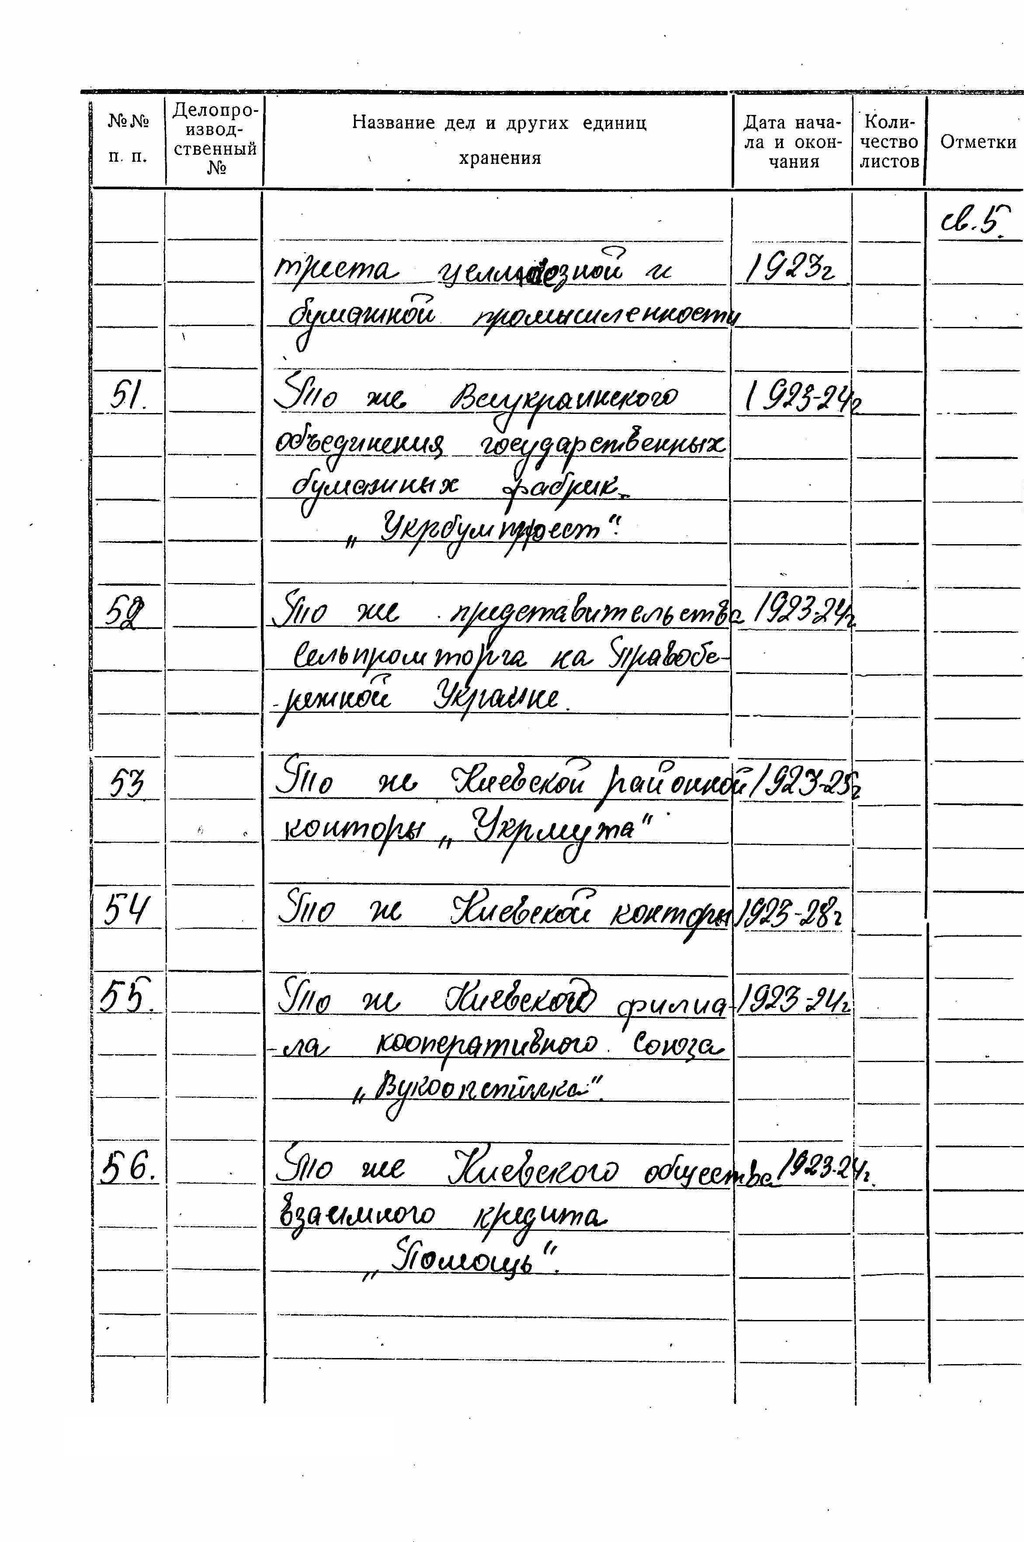 №№ п. п.
Делопро-
извод-
ственный
№
Название дел и других единиц
хранения
Дата нача-
ла и окон-
чания
Коли-
чество
листов
Отметки
св. 5.
треста целлюлозной и 1923г
бумажной промышленности
51. То же Всеукраинского 1923-24г
объединения государственных
бумажных фабрик
„Укрбумтрест“.
52 То же представительства 1923-24г.
Сельпромторга на Правобе-
-режной Украине.
53 То же Киевской районной 1923-25г
конторы „Укрмута“
54 То же Киевской конторы 1923-28г
55. То же Киевского филиа- 1923-24г
-ла кооперативного Союза
„Вукоопспілка“.
56. То же Киевского общества 1923-24г.
взаимного кредита
„Помощь“.